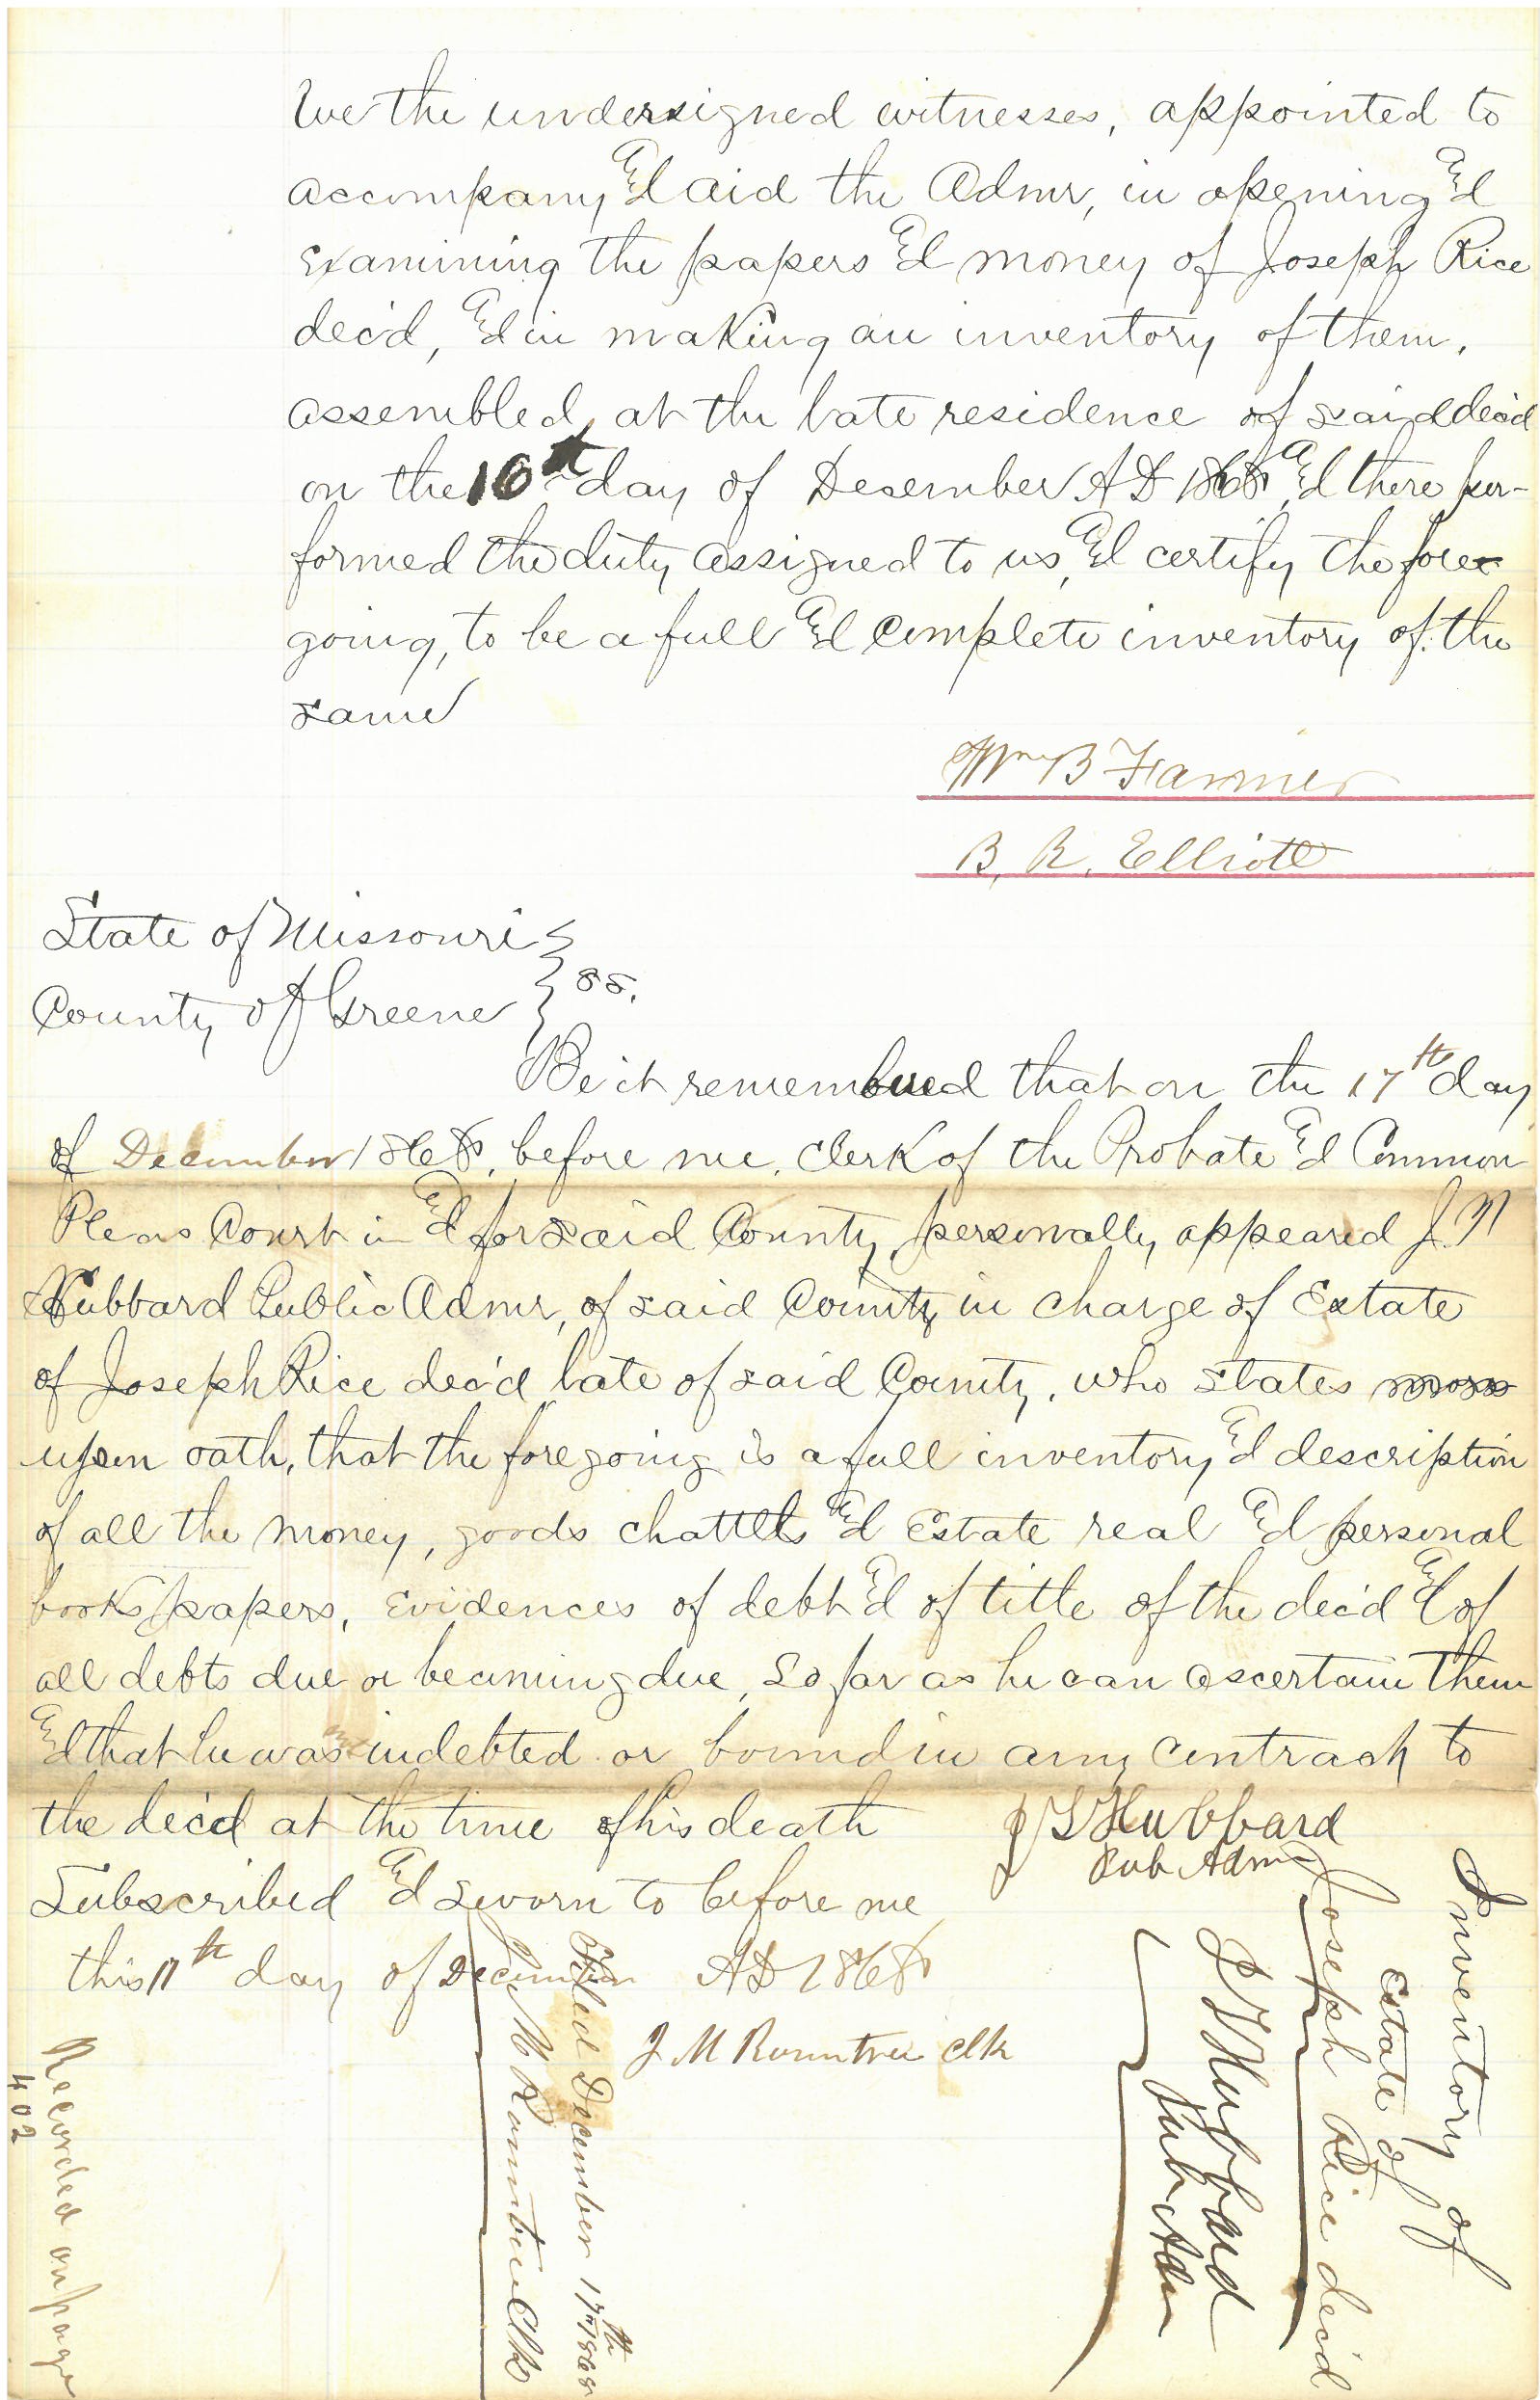 We the undersigned witnesses, appointed to
accompany &d aid the Admr, in opening &d
examining the papers &d money of Joseph Rice
dec'd, &d in making an inventory of them,
assembled, at the late residence of said dec'd
on the 16th day of December AD 1868, &d there per-
formed the duty assigned to us, &d certify the fore-
going, to be a full &d complete inventory of the
same
Wm B Farmer
B, R, Elliott
State of Missouri }
County of Greene } ss.
Be it remembered that on the 17th day
of December 1868, before me, Clerk of the Probate &d Common
Pleas Court in &d for said County, personally appeared J. 
Hubbard Public Admr, of said County in charge of Estate
of Joseph Rice dec'd late of said County, who states
upon oath, that the foregoing is a full inventory &d description
of all the money, goods chattles &d Estate real &d personal
books papers, evidences of debt &d of title of the dec'd &d of
all debts due or becoming due, so far as he can ascertain them
&d that he was indebted or bound in any contract to
the dec'd at the time of his death
J S Hubbard
Pub Admr
Subscribed &d sworn to before me
this 17th day of December AD 1868
J M Rountree clk
Inventory of
Estate of
Joseph Rice dec'd
J S Hubbard
Pub Adm
Filed December 17th 1868
J M Rountree Clk
Recorded on page
402